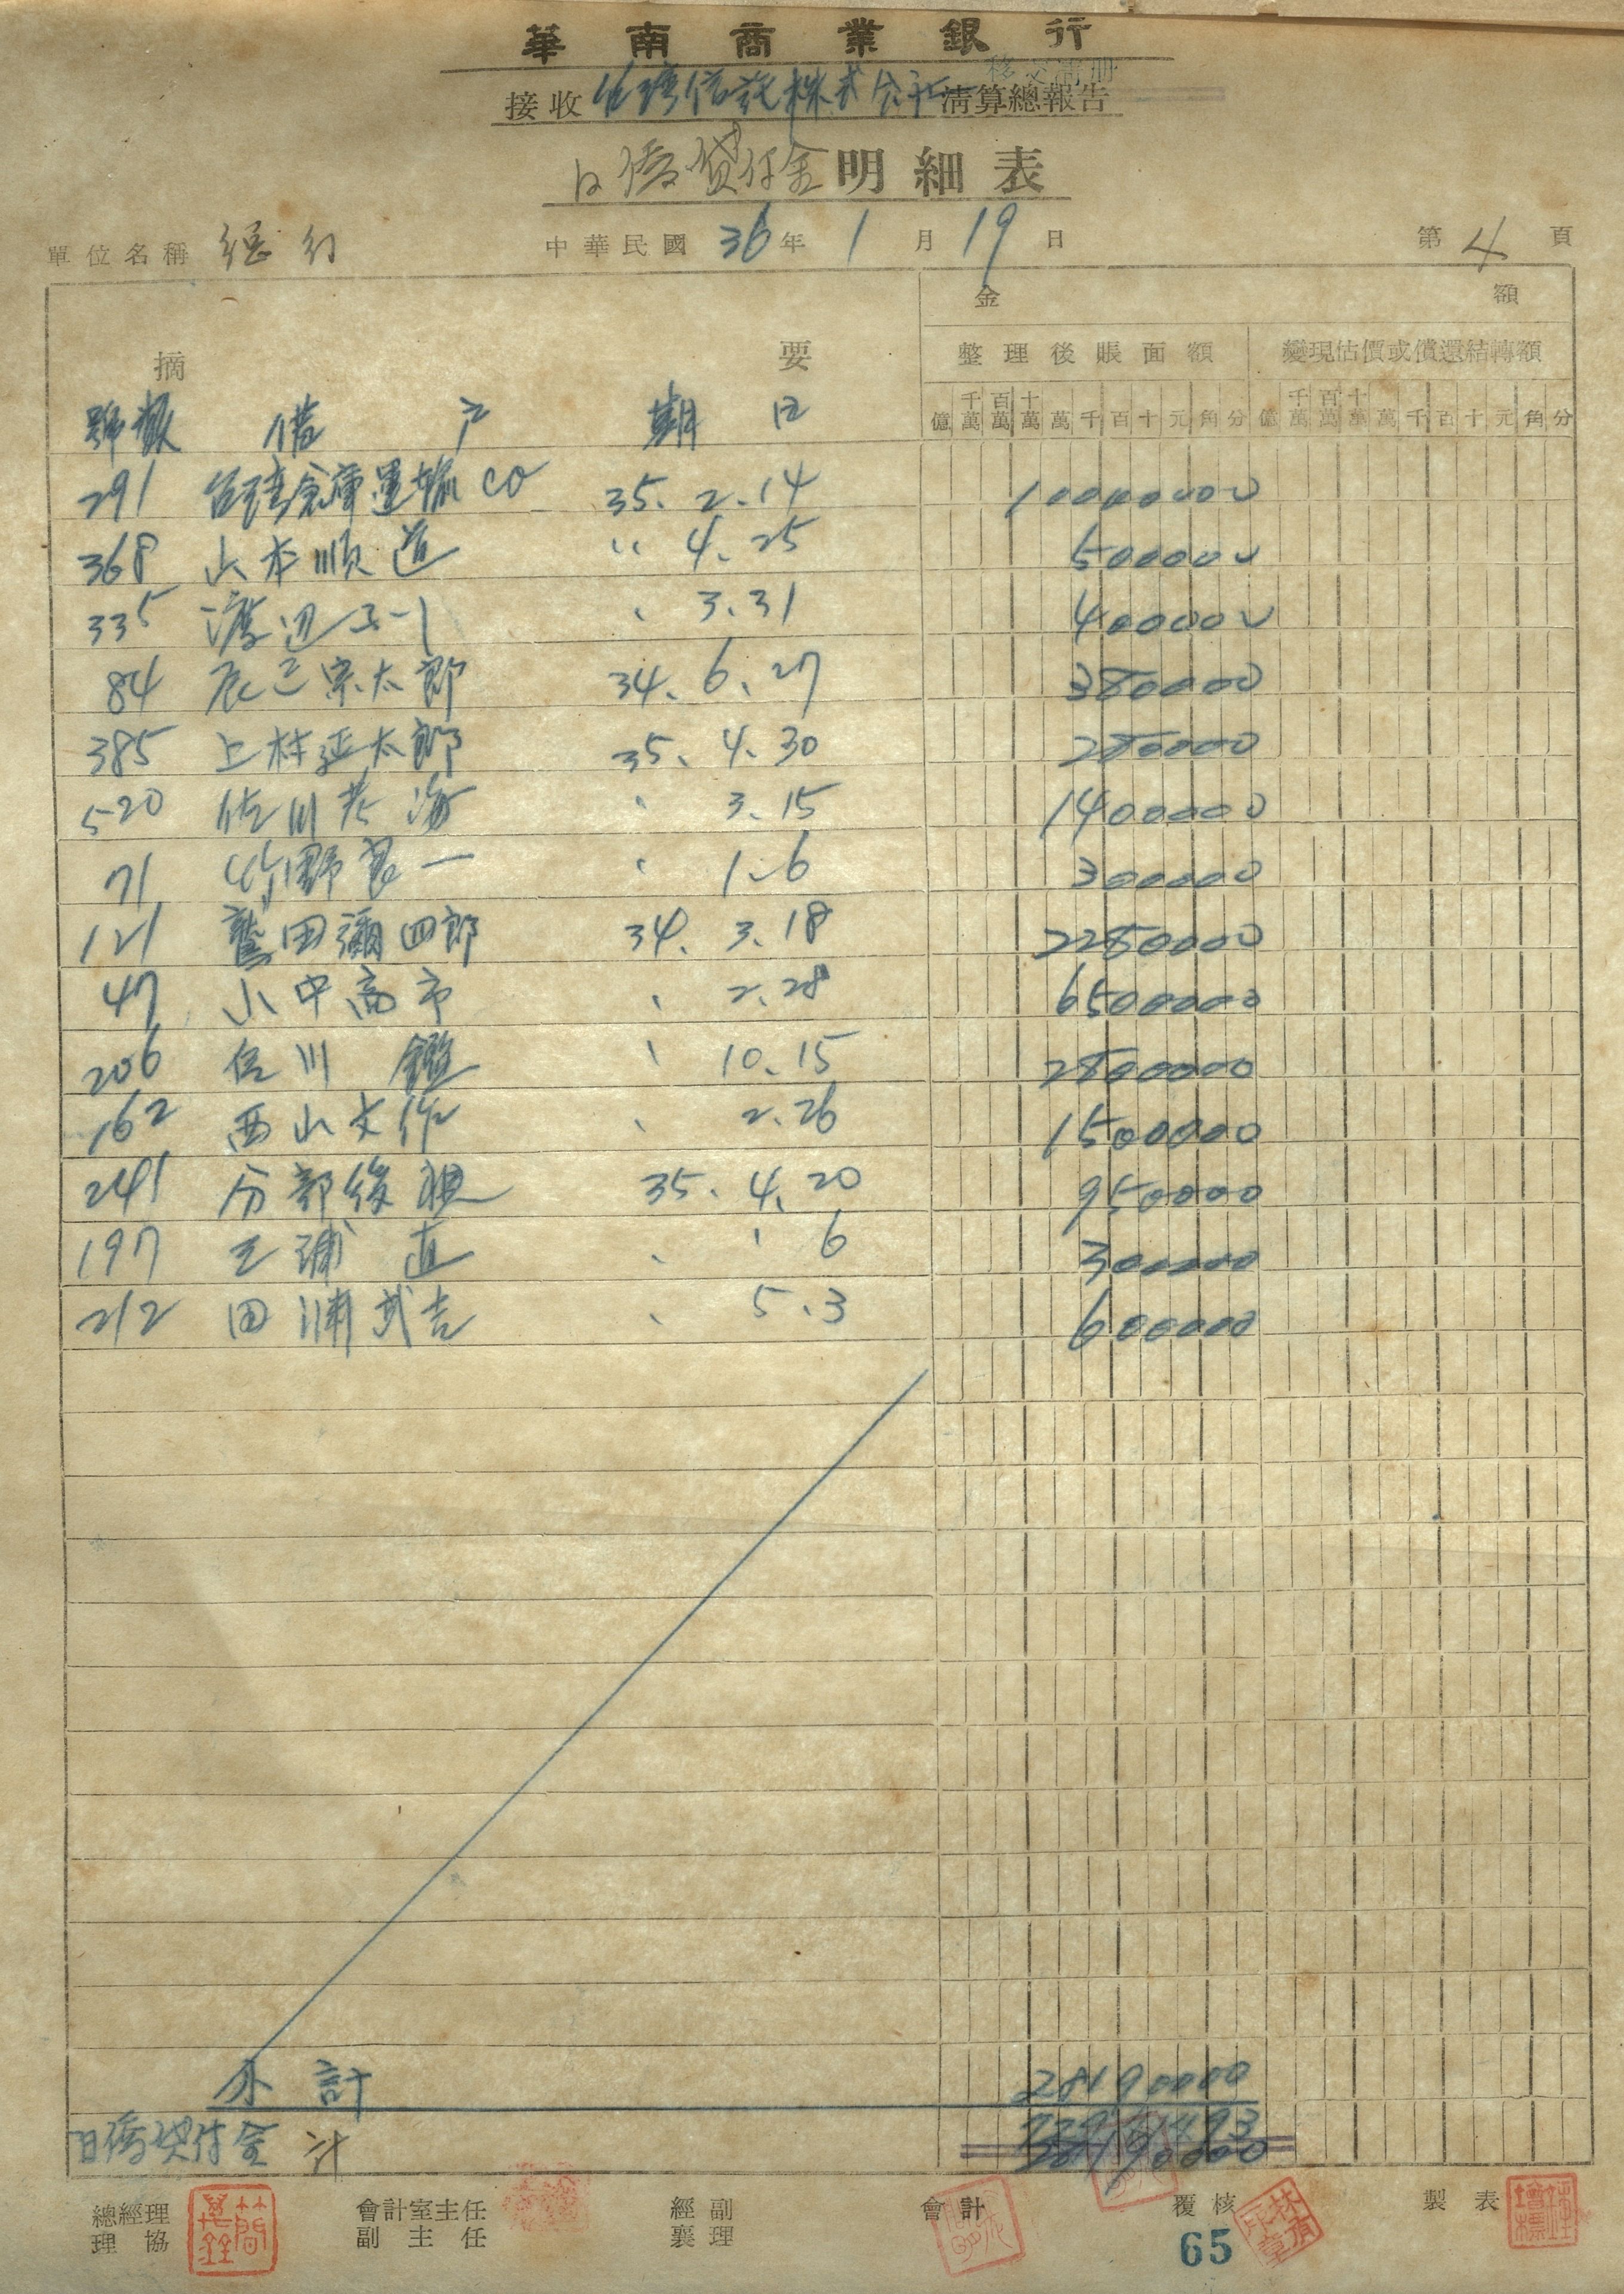 華南商業銀行
移交清冊
接收 台湾信託株式会社 清算總報告
日僑貸付金 明細表
單位名稱 總行 中華民國 36 年 1 月 19 日 第 4 頁
金額
摘要 整理後賬面額 變現估價或償還結轉額
億 千萬 百萬 十萬 萬 千 百 十 元 角 分 億 千萬 百萬 十萬 萬 千 百 十 元 角 分
號數 借戶 期日
291 台湾倉庫運輸CO 35. 2. 14 10040000
368 山本順道 〃 4. 25 500000
335 渡辺 〃 3. 31 400000
84 辰三宗太郎 34. 6. 27 380000
385 上村延太郎 35. 4. 30 280000
520 佐川 海 〃 3. 15 1400000
71 竹野良一 〃 1. 6 300000
121 鷲田彌四郎 34. 3. 18 2250000
47 小中高市 〃 2. 28 6500000
206 佐川 鑑 〃 10. 15 2800000
162 西山文作 〃 2. 26 1500000
241 分部俊 35. 4. 20 950000
197 三浦 直 〃 〃 6 300000
212 田浦武吉 〃 5. 3 600000
小計 28190000
日僑貸付金 計
總經理 協理 會計室主任 副主任 經副襄理 會計 覆核 製表
65